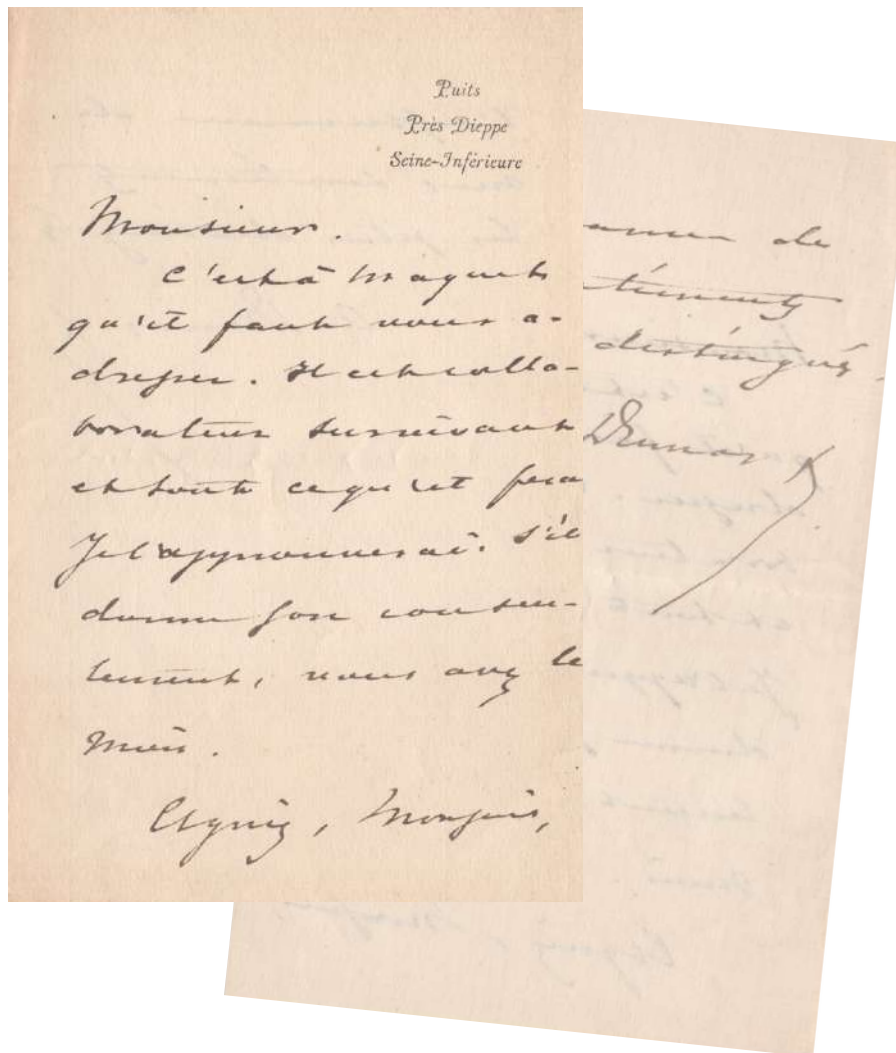 Puits
Près Dieppe
Seine-Inférieure
Monsieur.
C'est à Maquet
qu'il faut vous a-
dresser. Il est colla-
borateur survivant
et tout ce qu'il fera
Je l'approuverai. S'il
donne son consen-
tement, vous avez le
mien.
Agréez, Monsieur,
de
distingués
Dumas